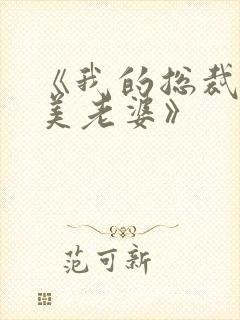 《我的总裁
美老婆》
范可新